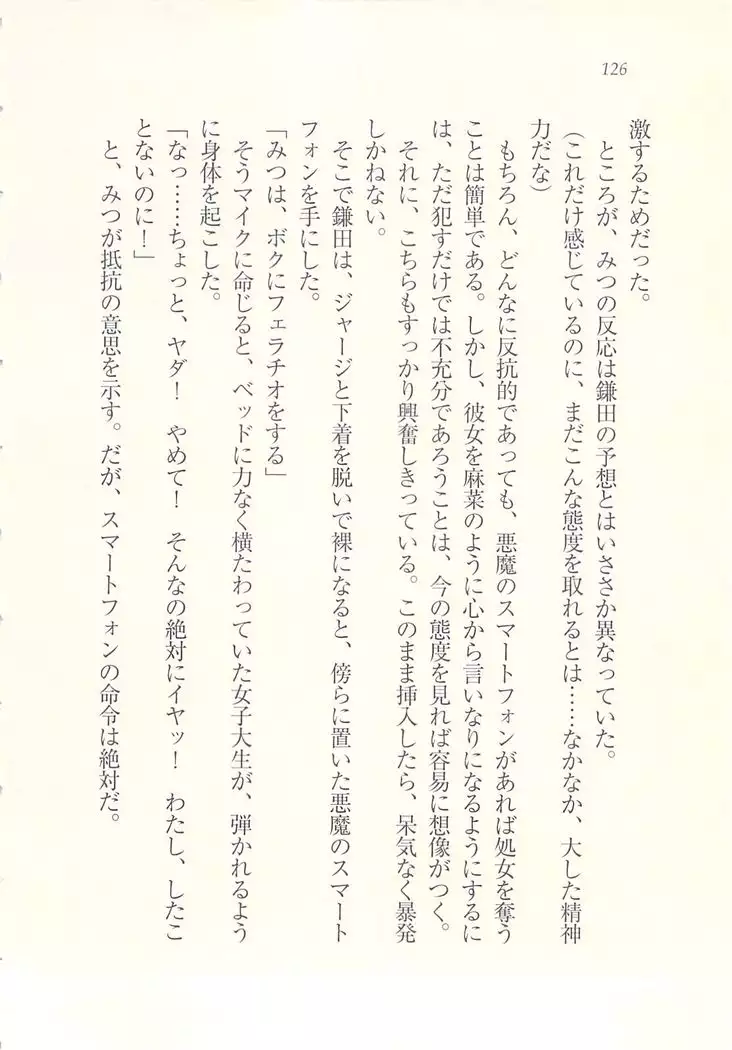 126
激するためだった。
ところが、みつの反応は鎌田の予想とはいささか異なっていた。
(これだけ感じているのに、まだこんな態度を取れるとは……なかなか、大した精神
力だな)
もちろん、どんなに反抗的であっても、悪魔のスマートフォンがあれば処女を奪う
ことは簡単である。しかし、彼女を麻菜のように心から言いなりになるようにするに
は、ただ犯すだけでは不充分であろうことは、今の態度を見れば容易に想像がつく。
それに、こちらもすっかり興奮しきっている。このまま挿入したら、呆気なく暴発
しかねない。
そこで鎌田は、ジャージと下着を脱いで裸になると、傍らに置いた悪魔のスマート
フォンを手にした。
「みつは、ボクにフェラチオをする」
そうマイクに命じると、ベッドに力なく横たわっていた女子大生が、弾かれるよう
に身体を起こした。
「なっ……ちょっと、ヤダ！　やめて！　そんなの絶対にイヤッ！　わたし、したこ
とないのに！」
と、みつが抵抗の意思を示す。だが、スマートフォンの命令は絶対だ。